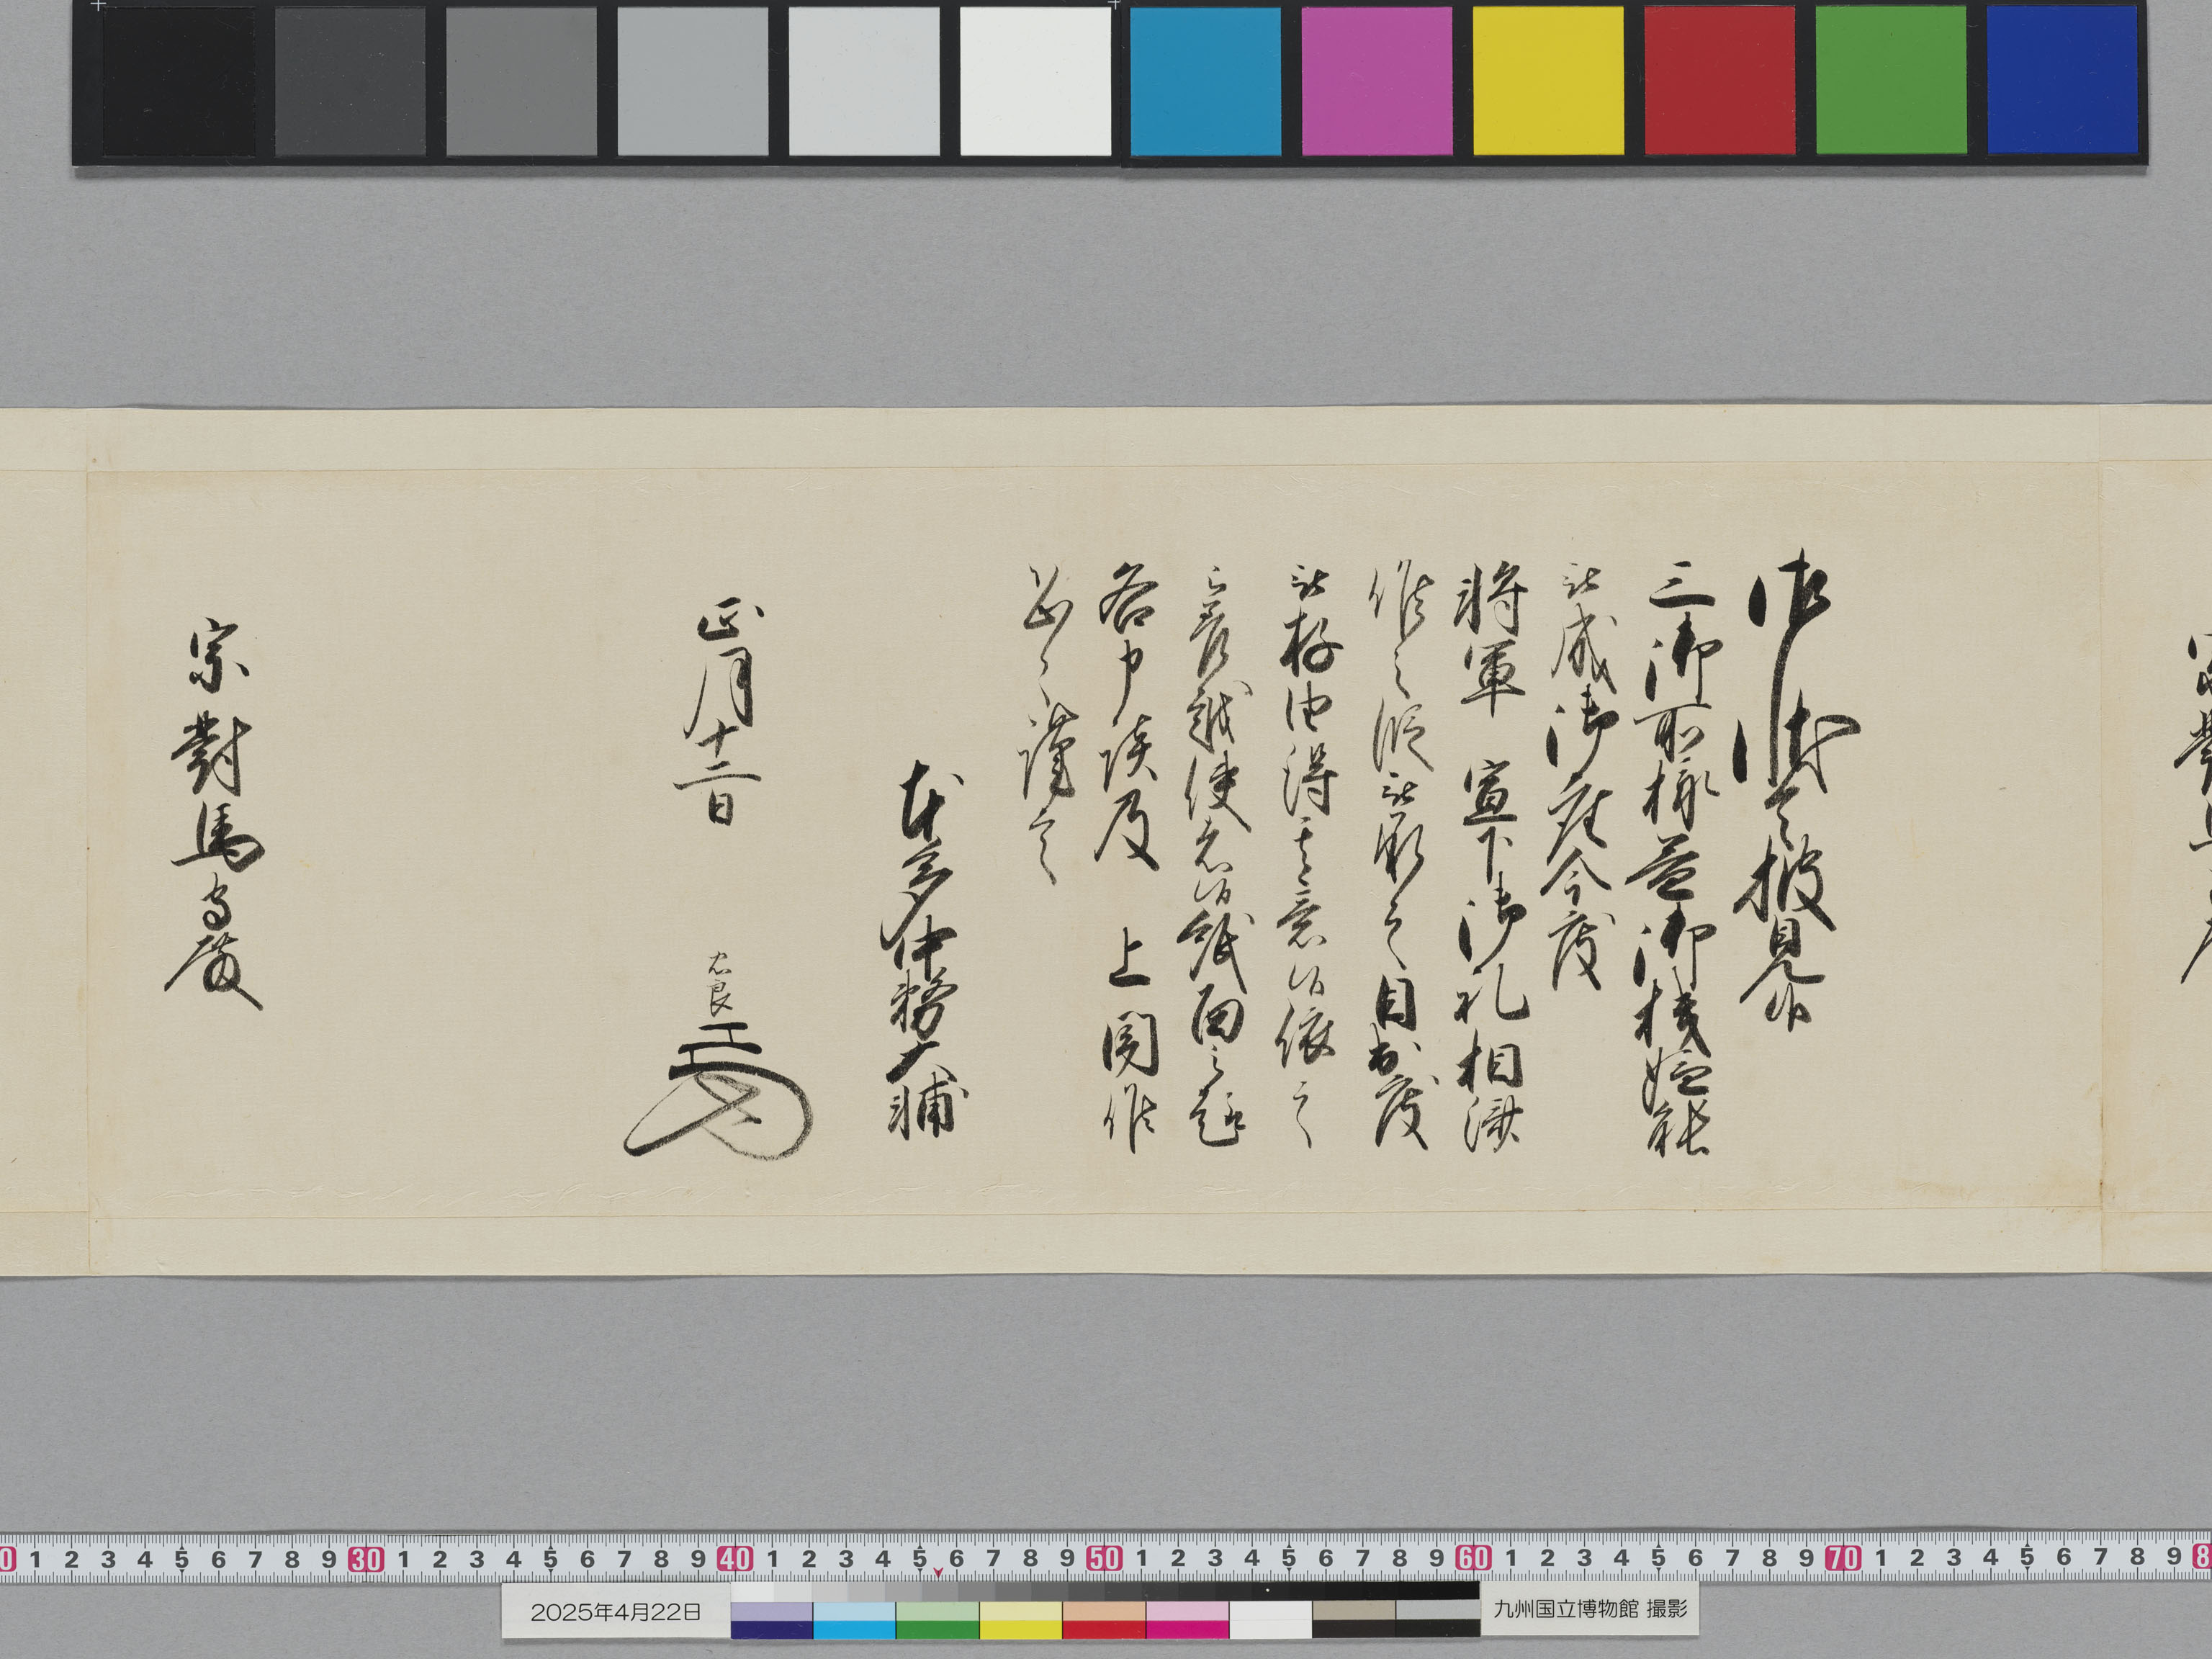 御状令披見候
三御所様益御機嫌能
被成御座今度
將軍　宣下御礼相濟
候之段被承之目出度
被存由得其意候依之
以飛脚使者紙面之趣
各申談及　上聞候
恐々謹言
本多中務大輔
正月十二日
忠良
宗對馬守殿
2025年4月22日
九州国立博物館 撮影
0 1 2 3 4 5 6 7 8 9 30 1 2 3 4 5 6 7 8 9 40 1 2 3 4 5 6 7 8 9 50 1 2 3 4 5 6 7 8 9 60 1 2 3 4 5 6 7 8 9 70 1 2 3 4 5 6 7 8 9 8